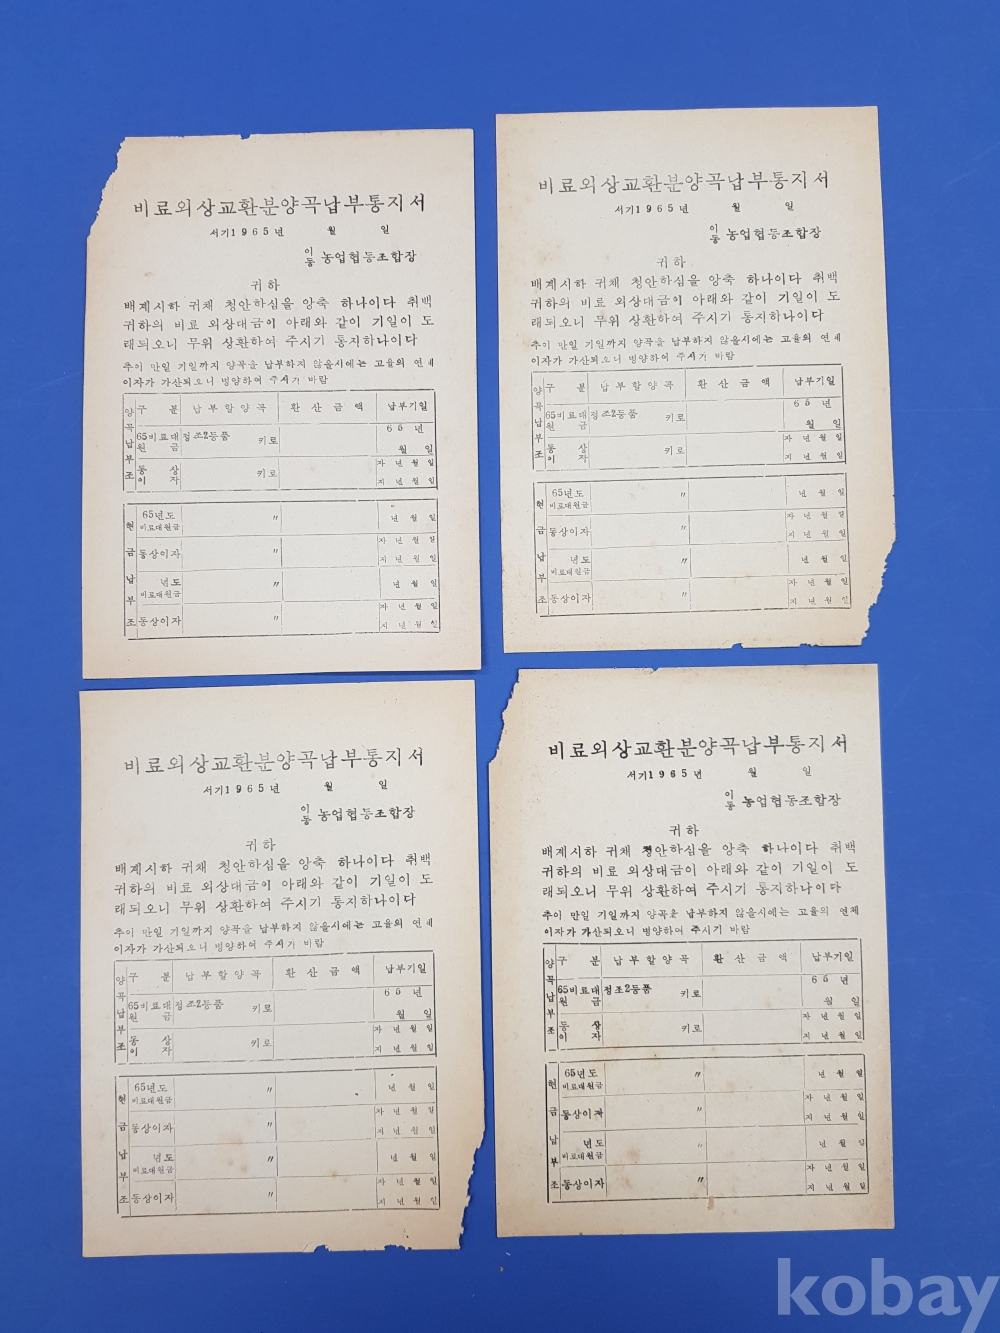 비료외상교환분양곡납부통지서
서기1965년 월 일
이동 농업협동조합장
귀하
배계시하 귀체 청안하심을 앙축 하나이다 취백
귀하의 비료 외상대금이 아래와 같이 기일이 도
래되오니 무위 상환하여 주시기 통지하나이다
추이 만일 기일까지 양곡을 납부하지 않을시에는 고율의 연체
이자가 가산되오니 병양하여 주시기 바람
양곡납부조 구 분 납부할양곡 환산금액 납부기일
65비료대원금 정조2등품 키로 65년 월 일
동상이자 키로 자 년 월 일
지 년 월 일
현금납부조 65년도비료대원금 〃 년 월 일
동상이자 〃 자 년 월 일
지 년 월 일
년도비료대원금 〃 년 월 일
동상이자 〃 자 년 월 일
지 년 월 일
비료외상교환분양곡납부통지서
서기1965년 월 일
이동 농업협동조합장
귀하
배계시하 귀체 청안하심을 앙축 하나이다 취백
귀하의 비료 외상대금이 아래와 같이 기일이 도
래되오니 무위 상환하여 주시기 통지하나이다
추이 만일 기일까지 양곡을 납부하지 않을시에는 고율의 연체
이자가 가산되오니 병양하여 주시기 바람
양곡납부조 구 분 납부할양곡 환산금액 납부기일
65비료대원금 정조2등품 키로 65년 월 일
동상이자 키로 자 년 월 일
지 년 월 일
현금납부조 65년도비료대원금 〃 년 월 일
동상이자 〃 자 년 월 일
지 년 월 일
년도비료대원금 〃 년 월 일
동상이자 〃 자 년 월 일
지 년 월 일
비료외상교환분양곡납부통지서
서기1965년 월 일
이동 농업협동조합장
귀하
배계시하 귀체 청안하심을 앙축 하나이다 취백
귀하의 비료 외상대금이 아래와 같이 기일이 도
래되오니 무위 상환하여 주시기 통지하나이다
추이 만일 기일까지 양곡을 납부하지 않을시에는 고율의 연체
이자가 가산되오니 병양하여 주시기 바람
양곡납부조 구 분 납부할양곡 환산금액 납부기일
65비료대원금 정조2등품 키로 65년 월 일
동상이자 키로 자 년 월 일
지 년 월 일
현금납부조 65년도비료대원금 〃 년 월 일
동상이자 〃 자 년 월 일
지 년 월 일
년도비료대원금 〃 년 월 일
동상이자 〃 자 년 월 일
지 년 월 일
비료외상교환분양곡납부통지서
서기1965년 월 일
이동 농업협동조합장
귀하
배계시하 귀체 청안하심을 앙축 하나이다 취백
귀하의 비료 외상대금이 아래와 같이 기일이 도
래되오니 무위 상환하여 주시기 통지하나이다
추이 만일 기일까지 양곡을 납부하지 않을시에는 고율의 연체
이자가 가산되오니 병양하여 주시기 바람
양곡납부조 구 분 납부할양곡 환산금액 납부기일
65비료대원금 정조2등품 키로 65년 월 일
동상이자 키로 자 년 월 일
지 년 월 일
현금납부조 65년도비료대원금 〃 년 월 일
동상이자 〃 자 년 월 일
지 년 월 일
년도비료대원금 〃 년 월 일
동상이자 〃 자 년 월 일
지 년 월 일
kobay